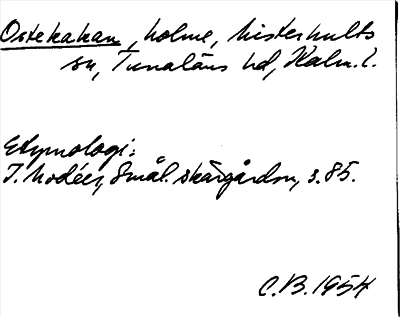 Ostekakan, holme, Misterhults
sn, Tunaläns hd, Kalm. l.
Etymologi:
I. Modéer, Smål. skärgårdsn, s. 85.
C.B. 1954